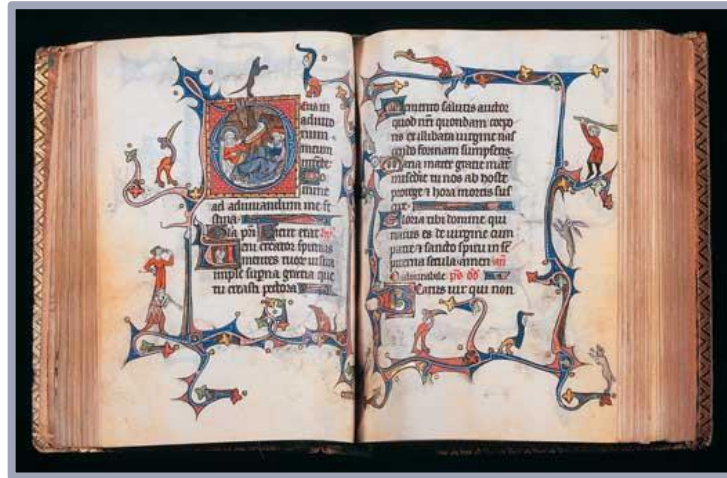 Eus in
adiuto
rium
meum
Do
mine
ad adiuuandum me fe
stina
pri Sicut erat
eni creator spiritus
mentes tuor uisita
imple supna gratia que
tu creasti pectora
emento salutis auctor
quod nri quondam corpo
ris ex illibata uirgine nas
cendo formam sumpseris
Maria mater gratie mat
misedie tu nos ab hoste
protege ⁊ hora mortis sus
cipe
Gloria tibi domine qui
natus es de uirgine cum
patre ⁊ sancto spiritu in se
piterna secula amen an
O admirabile ps dd
Eatus uir qui non